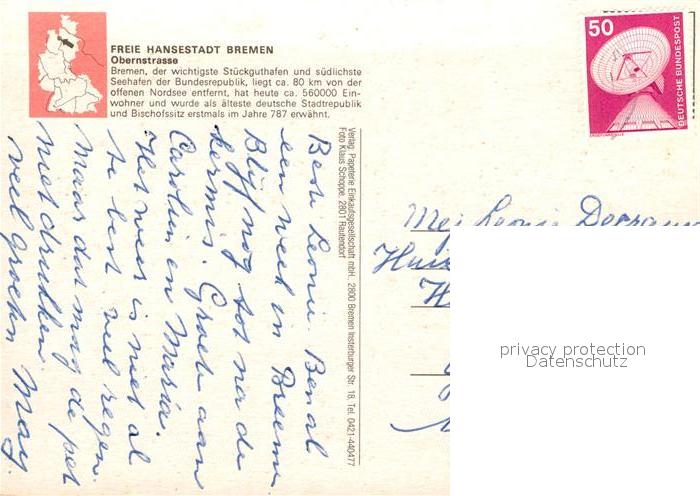 FREIE HANSESTADT BREMEN
Obernstrasse
Bremen, der wichtigste Stückguthafen und südlichste
Seehafen der Bundesrepublik, liegt ca. 80 km von der
offenen Nordsee entfernt, hat heute ca. 560000 Ein-
wohner und wurde als älteste deutsche Stadtrepublik
und Bischofssitz erstmals im Jahre 787 erwähnt.
50
DEUTSCHE BUNDESPOST
Verlag: Papeterie Einkaufsgesellschaft mbH, 2800 Bremen Insterburger Str. 18, Tel. 0421-440477
Foto Klaus Schoppe, 2801 Rautendorf
Beste Leonie. Ben al
een week in Breeme.
Blijf nog tot na de
kermis. Groete aan
Carolien en Maria.
Het weer is niet al
te best veel regen.
Maar dat mag de pet
niet drukken.
veel Groeten May.
Mej Leonie
privacy protection
Datenschutz